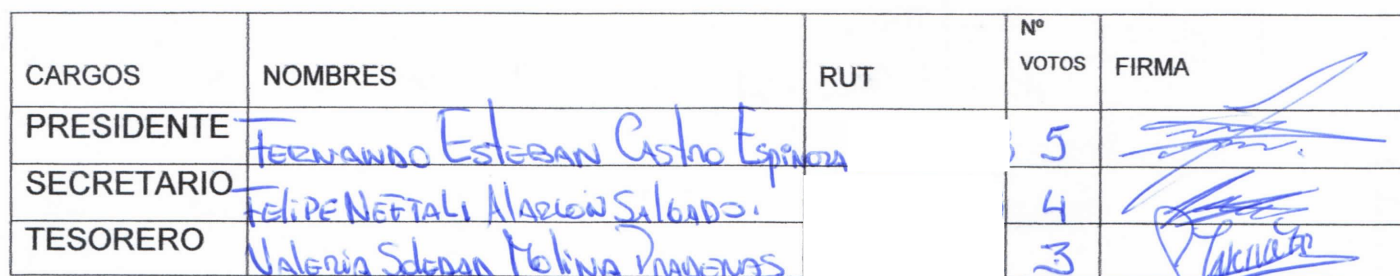 CARGOS NOMBRES RUT Nº VOTOS FIRMA
PRESIDENTE Fernando Esteban Castro Espinoza 5
SECRETARIO Felipe Neftali Alarcón Salgado. 4
TESORERO Valeria Soledad Molina 3